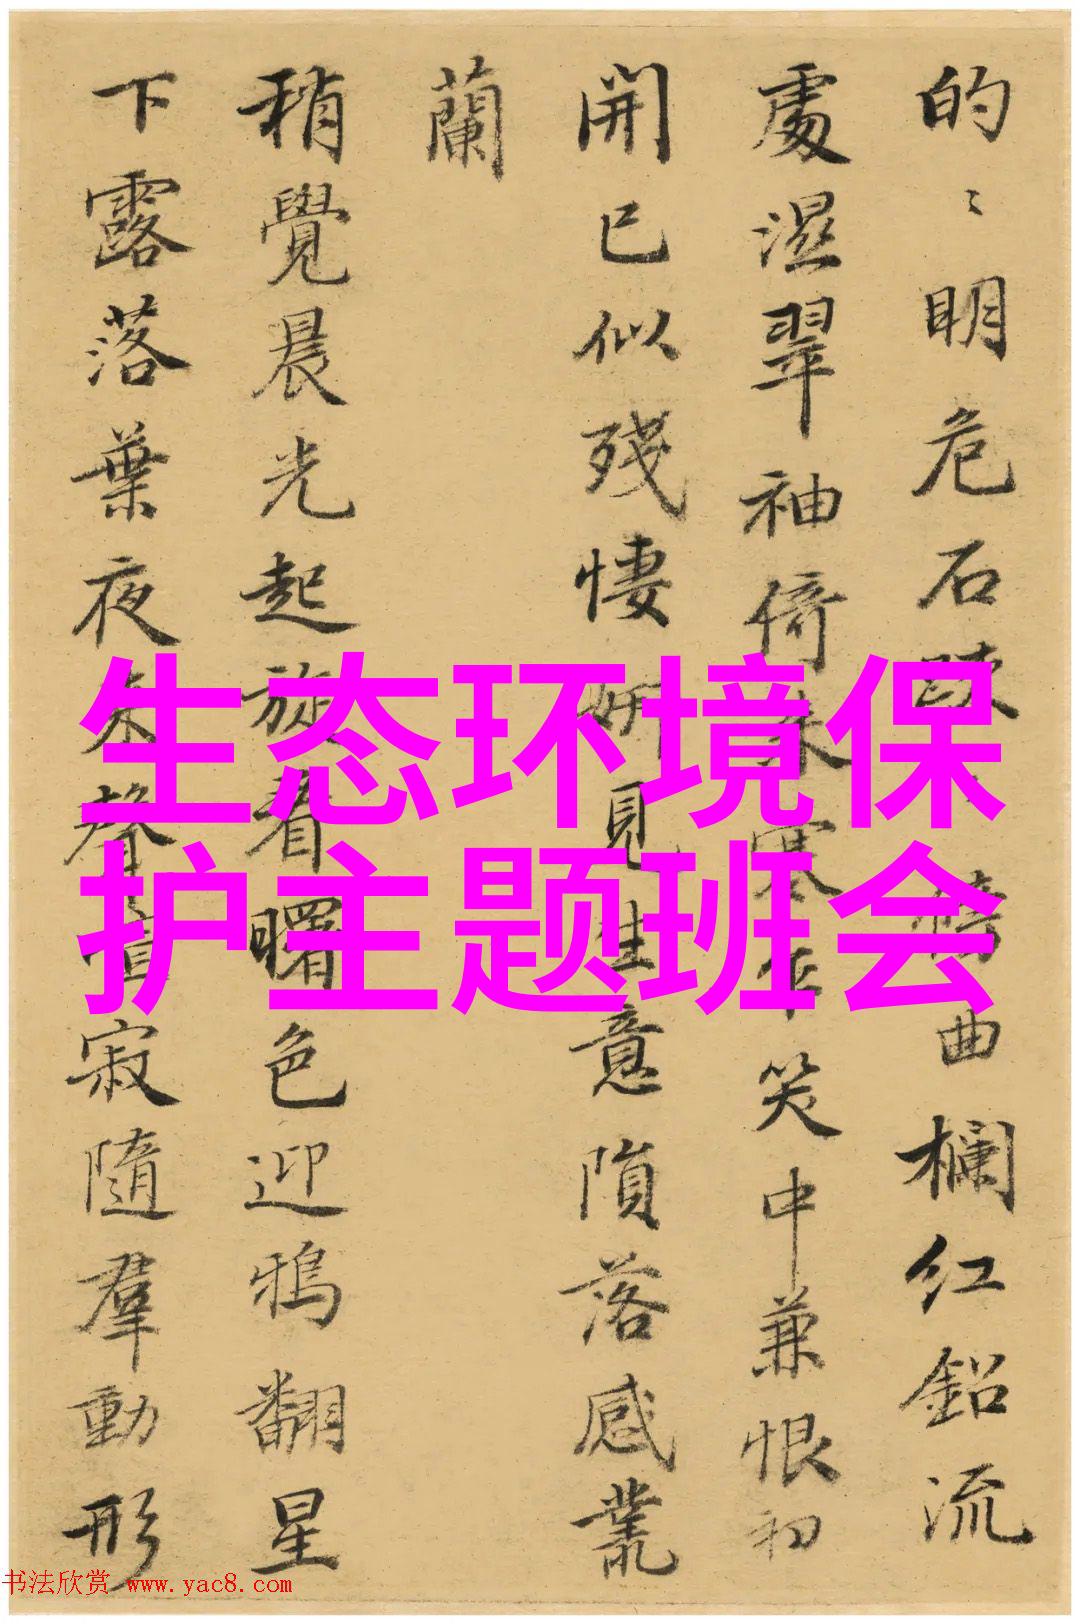 的〻明危石曲欄红鉛流
處濕翠袖倚来寒笑中兼恨初
開已似殘悽妍見生意隕落感叢
蘭
稍覺晨光起旋看曙色迎鴉翻星
下露落葉夜来聲寂隨羣動形
生态环境保
护主题班会
书法欣赏 www.yac8.com